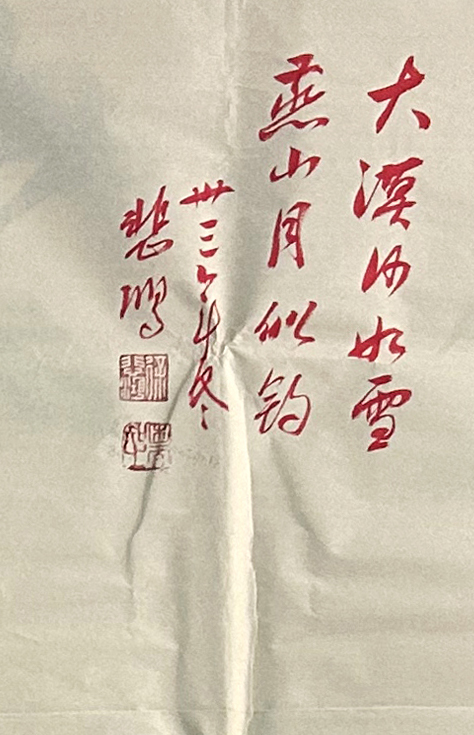 大漠沙如雪
燕山月似鈎
卅三年冬
悲鴻